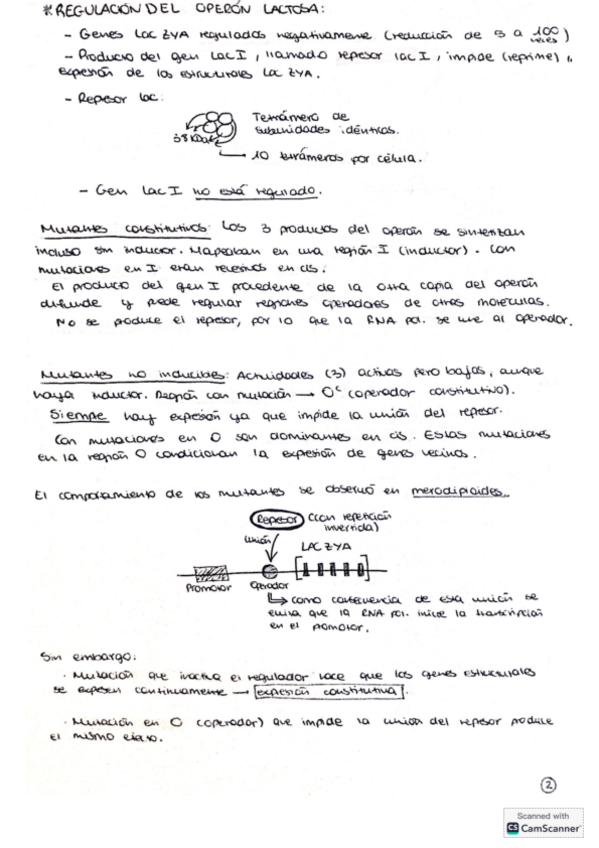 * REGULACIÓN DEL OPERÓN LACTOSA:
- Genes Lac ZYA regulados negativamente (reducción de 5 a 100 veces)
- Producto del gen Lac I, llamado represor lac I, impide (reprime)
expresión de los estructurales Lac ZYA.
- Represor lac:
38 KDa
Tetrámero de
subunidades idénticas.
10 tetrámeros por célula.
- Gen lac I no está regulado.
Mutantes constitutivos: Los 3 productos del operón se sintetizan
incluso sin inductor. Mapeaban en una región I (inductor). Con
mutaciones en I eran recesivos en cis.
El producto del gen I procedente de la otra copia del operón
difunde y puede regular regiones operadores de otras moleculas.
No se produce el represor, por lo que la RNA pol. se une al operador.
Mutantes no inducibles: Actividades (3) activas pero bajas, aunque
haya inductor. Región con mutación → Oc (operador constitutivo).
Siempre hay expresión ya que impide la unión del represor.
Con mutaciones en O son dominantes en cis. Estas mutaciones
en la región O condicionan la expresión de genes vecinos.
El comportamiento de los mutantes se observó en merodiploides.
Represor (con repetición
invertida)
Unión
LAC ZYA
Promotor
Operador
como consecuencia de esta unión se
evita que la RNA pol. inicie la transcripción
en el promotor.
Sin embargo:
· Mutación que inactiva el regulador hace que los genes estructurales
se expresen continuamente → expresión constitutiva.
· Mutación en O (operador) que impide la unión del represor produce
el mismo efecto.
2
Scanned with
CS CamScanner